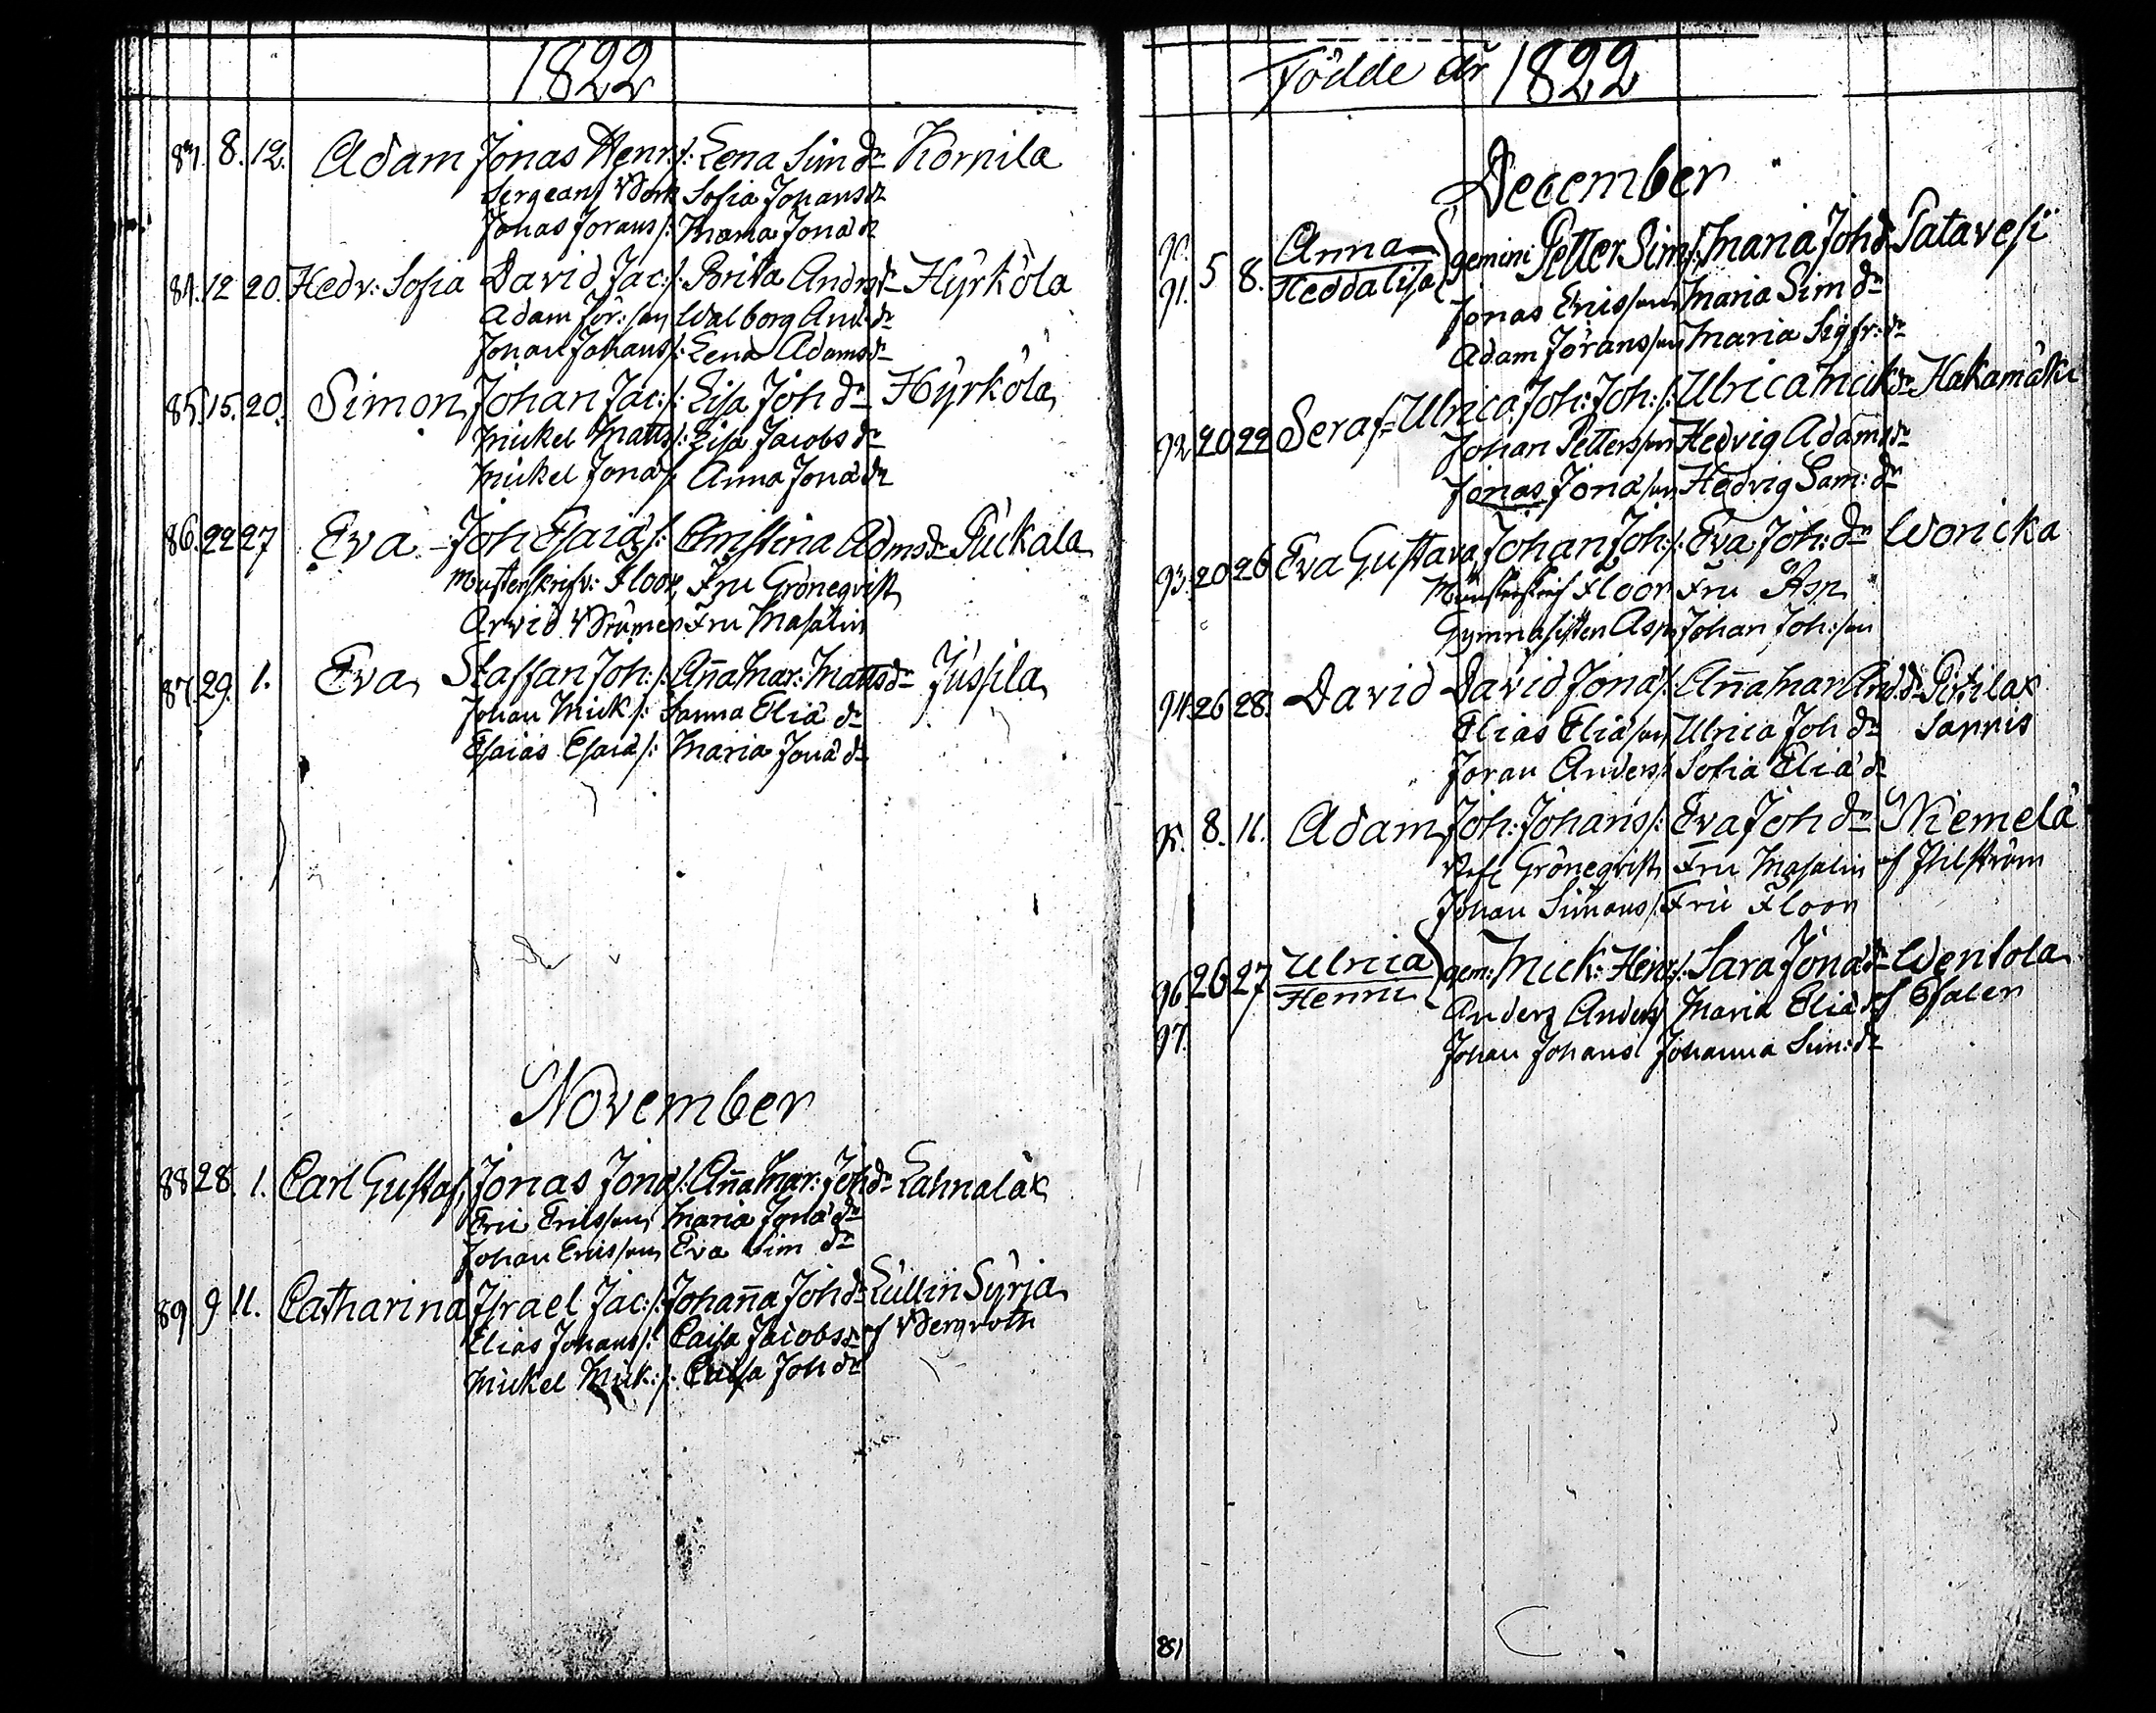 1822
83. 8. 12. Adam Jonas Henr:s: Lena Sim dr Kornila
Sergeant Sofia Johans dr
Jonas Jorans: Maria Jona dr
84. 12 20. Hedv: Sofia David Jac:s: Brita Andrs dr Hyrkölä
Adam Jör:son Walborg And: dr
Johan Johans: Lena Adams dr
85. 15. 20. Simon Johan Jac:s: Lisa Joh dr Hyrkölä
Mickel Matts: Lisa Jacobs dr
Mickel Jona s: Anna Jona dr
86. 22 27 Eva Joh Esaia s: Christina Adms dr Puckala
Munsterskrifv: Floor Fru Gröneqvist
Arvid Fru Masalin
87. 29. 1. Eva Staffan Joh:s: Aña Mar: Matts dr Jussila
Johan Mick s: Sanna Elia dr
Esaias Esaia s: Maria Jona dr
November
88 28. 1. Carl Gustaf Jonas Jona s: Aña Mar: Joh dr Lahnalax
Eric Ericsson Maria Jona dr
Johan Ericsson Eva Sim dr
89 9 11. Catharina Israel Jac:s: Johaña Joh dr Lullin Syrja
Elias Johans: Caisa Jacobs dr af Bergroth
Mickel Mick:s: Caisa Joh dr
Födde år 1822
December
90. 91. 5 8. Anna Hedda Lisa gemini Petter Sim s: Maria Joh dr Patavesi
Jonas Ericsson Maria Sim dr
Adam Jöransson Maria Sigfr: dr
92 20 22 Seraf= Ulrica Joh: Joh:s: Ulrica Mick dr Hakamäki
Johan Pettersson Hedvig Adams dr
Jonas Jonason Hedvig Sam: dr
93. 20 26 Eva Gustava Johan Joh:s: Eva Joh: dr Woricka
Munsterskrif Floor Fru Asp
Gymnasisten Asp Johan Joh:son
94. 26 28. David David Jona s: Aña Mar And: dr Pitilax
Elias Eliason Ulrica Joh dr Sannis
Joran Anders: Sofia Elia dr
95. 8. 11. Adam Joh: Johans: Eva Joh dr Niemelä
Gröneqvist Fru Masalin af
Johan Simons: Fru Floor
96. 26 27 Ulrica Henric gem: Mick: Henr s: Sara Jona dr Wentola
97. Anders Anders Maria Elia dr af
Johan Johans Johanna Sim: dr
81